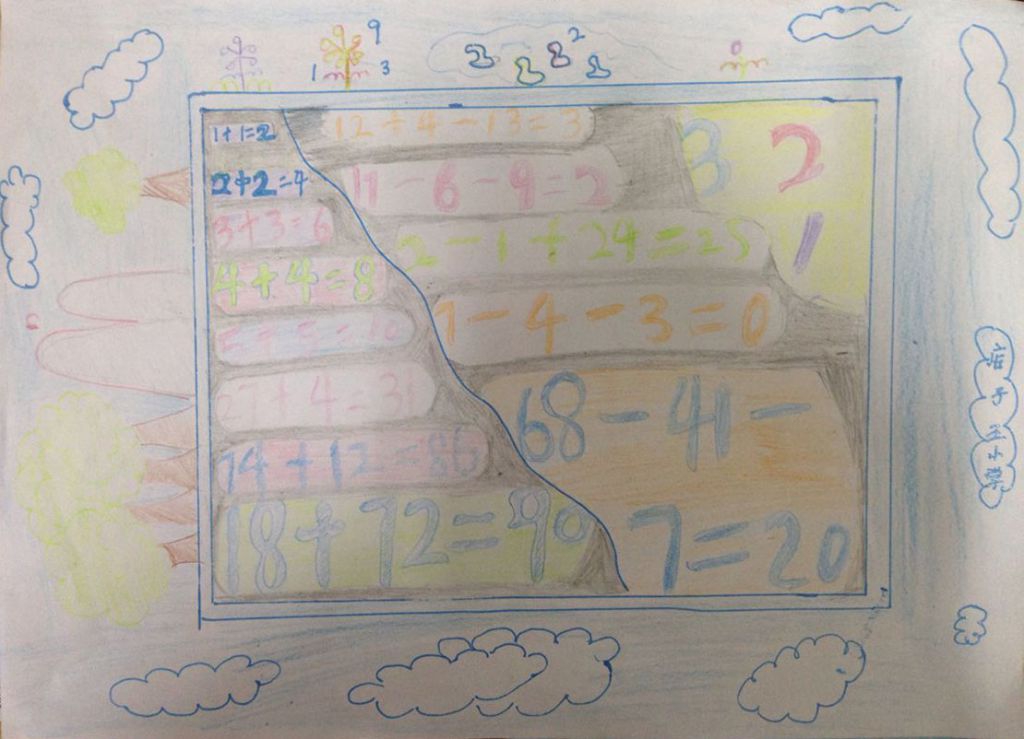 9
1 3
2 2 2 2
2
1+1=2
2+2=4
3+3=6
4+4=8
5+5=10
27+4=31
74+12=86
18+72=90
12+4-13=3
11-6-9=2
2-1+24=25
7-4-3=0
68-41-
7=20
3 2
1